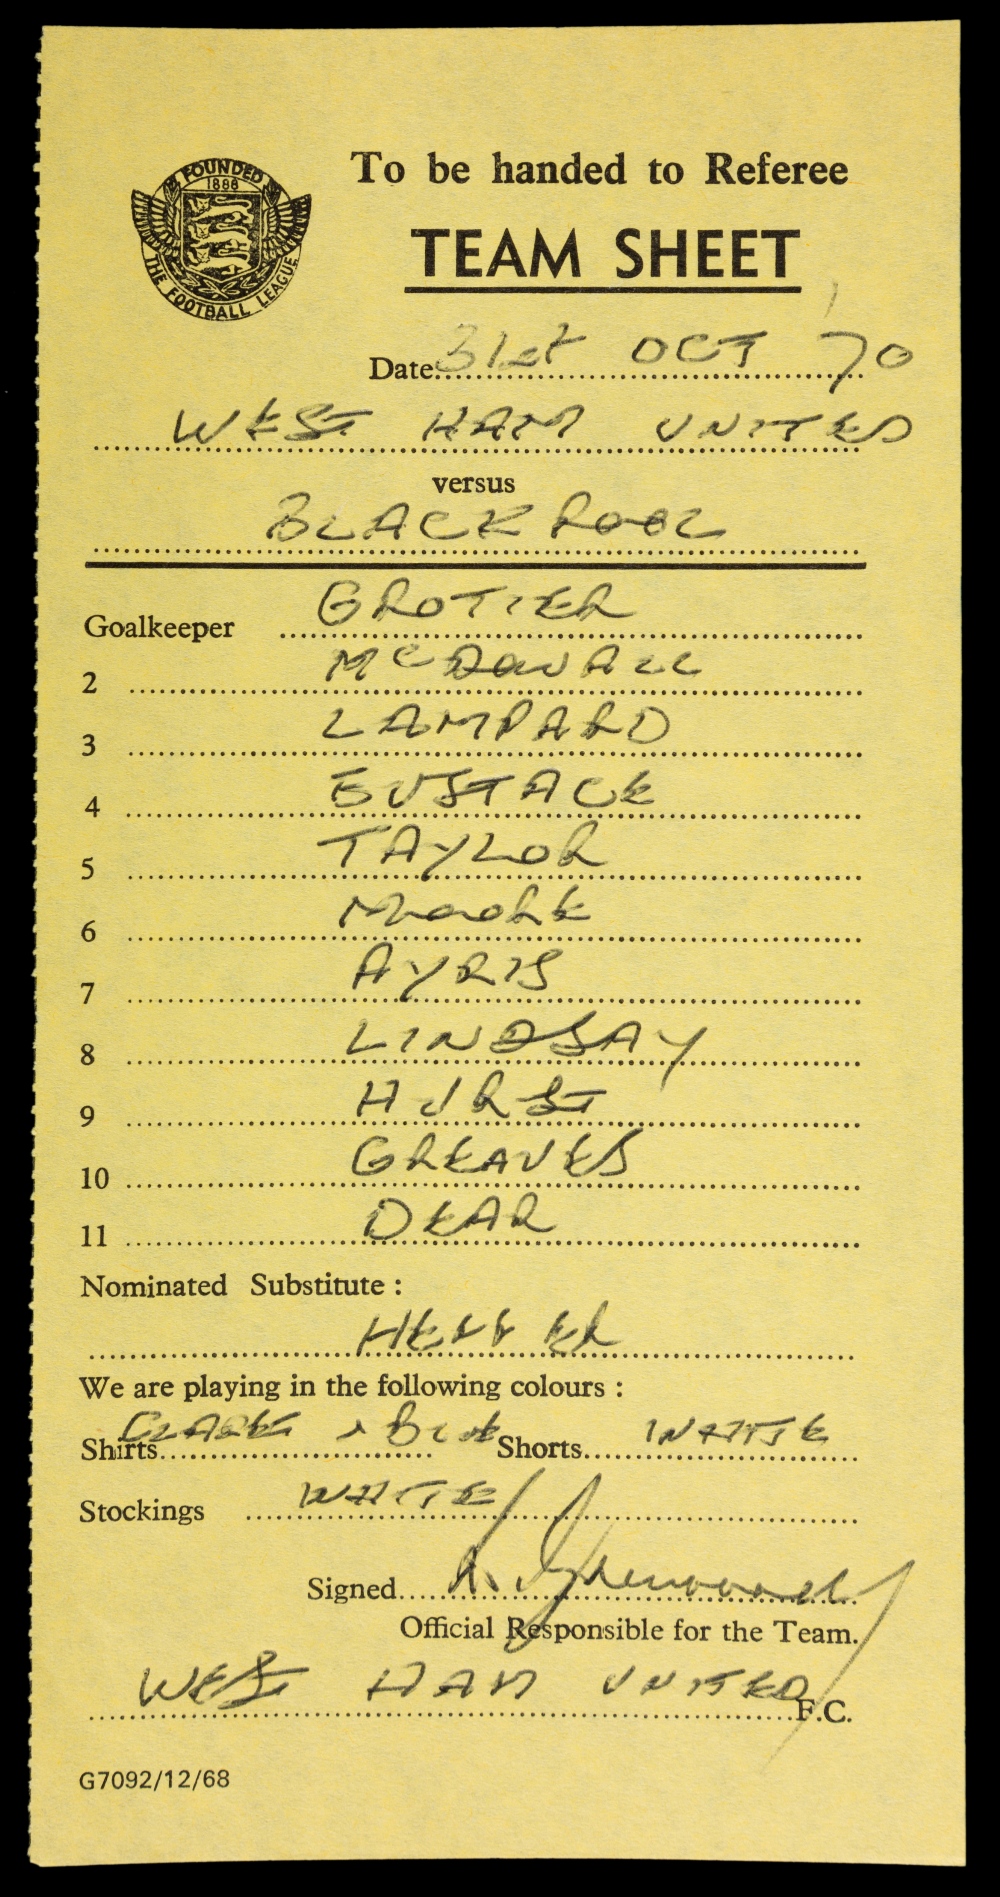 FOUNDED
1888
THE FOOTBALL LEAGUE
To be handed to Referee
TEAM SHEET
Date 31st OCT '70
WEST HAM UNITED
versus
BLACKPOOL
Goalkeeper GROTIER
2 McDOWALL
3 LAMPARD
4 EUSTACE
5 TAYLOR
6 MOORE
7 AYRIS
8 LINDSAY
9 HURST
10 GREAVES
11 DEAR
Nominated Substitute :
HEFFER
We are playing in the following colours :
Shirts CLARET + BLUE Shorts WHITE
Stockings WHITE
Signed R. Greenwood
Official Responsible for the Team.
WEST HAM UNITED F.C.
G7092/12/68